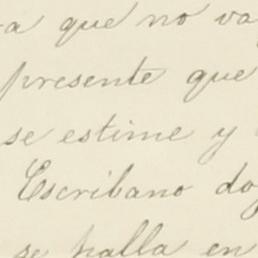 que no va
presente que
se estime y
Escribano doy
se halla en